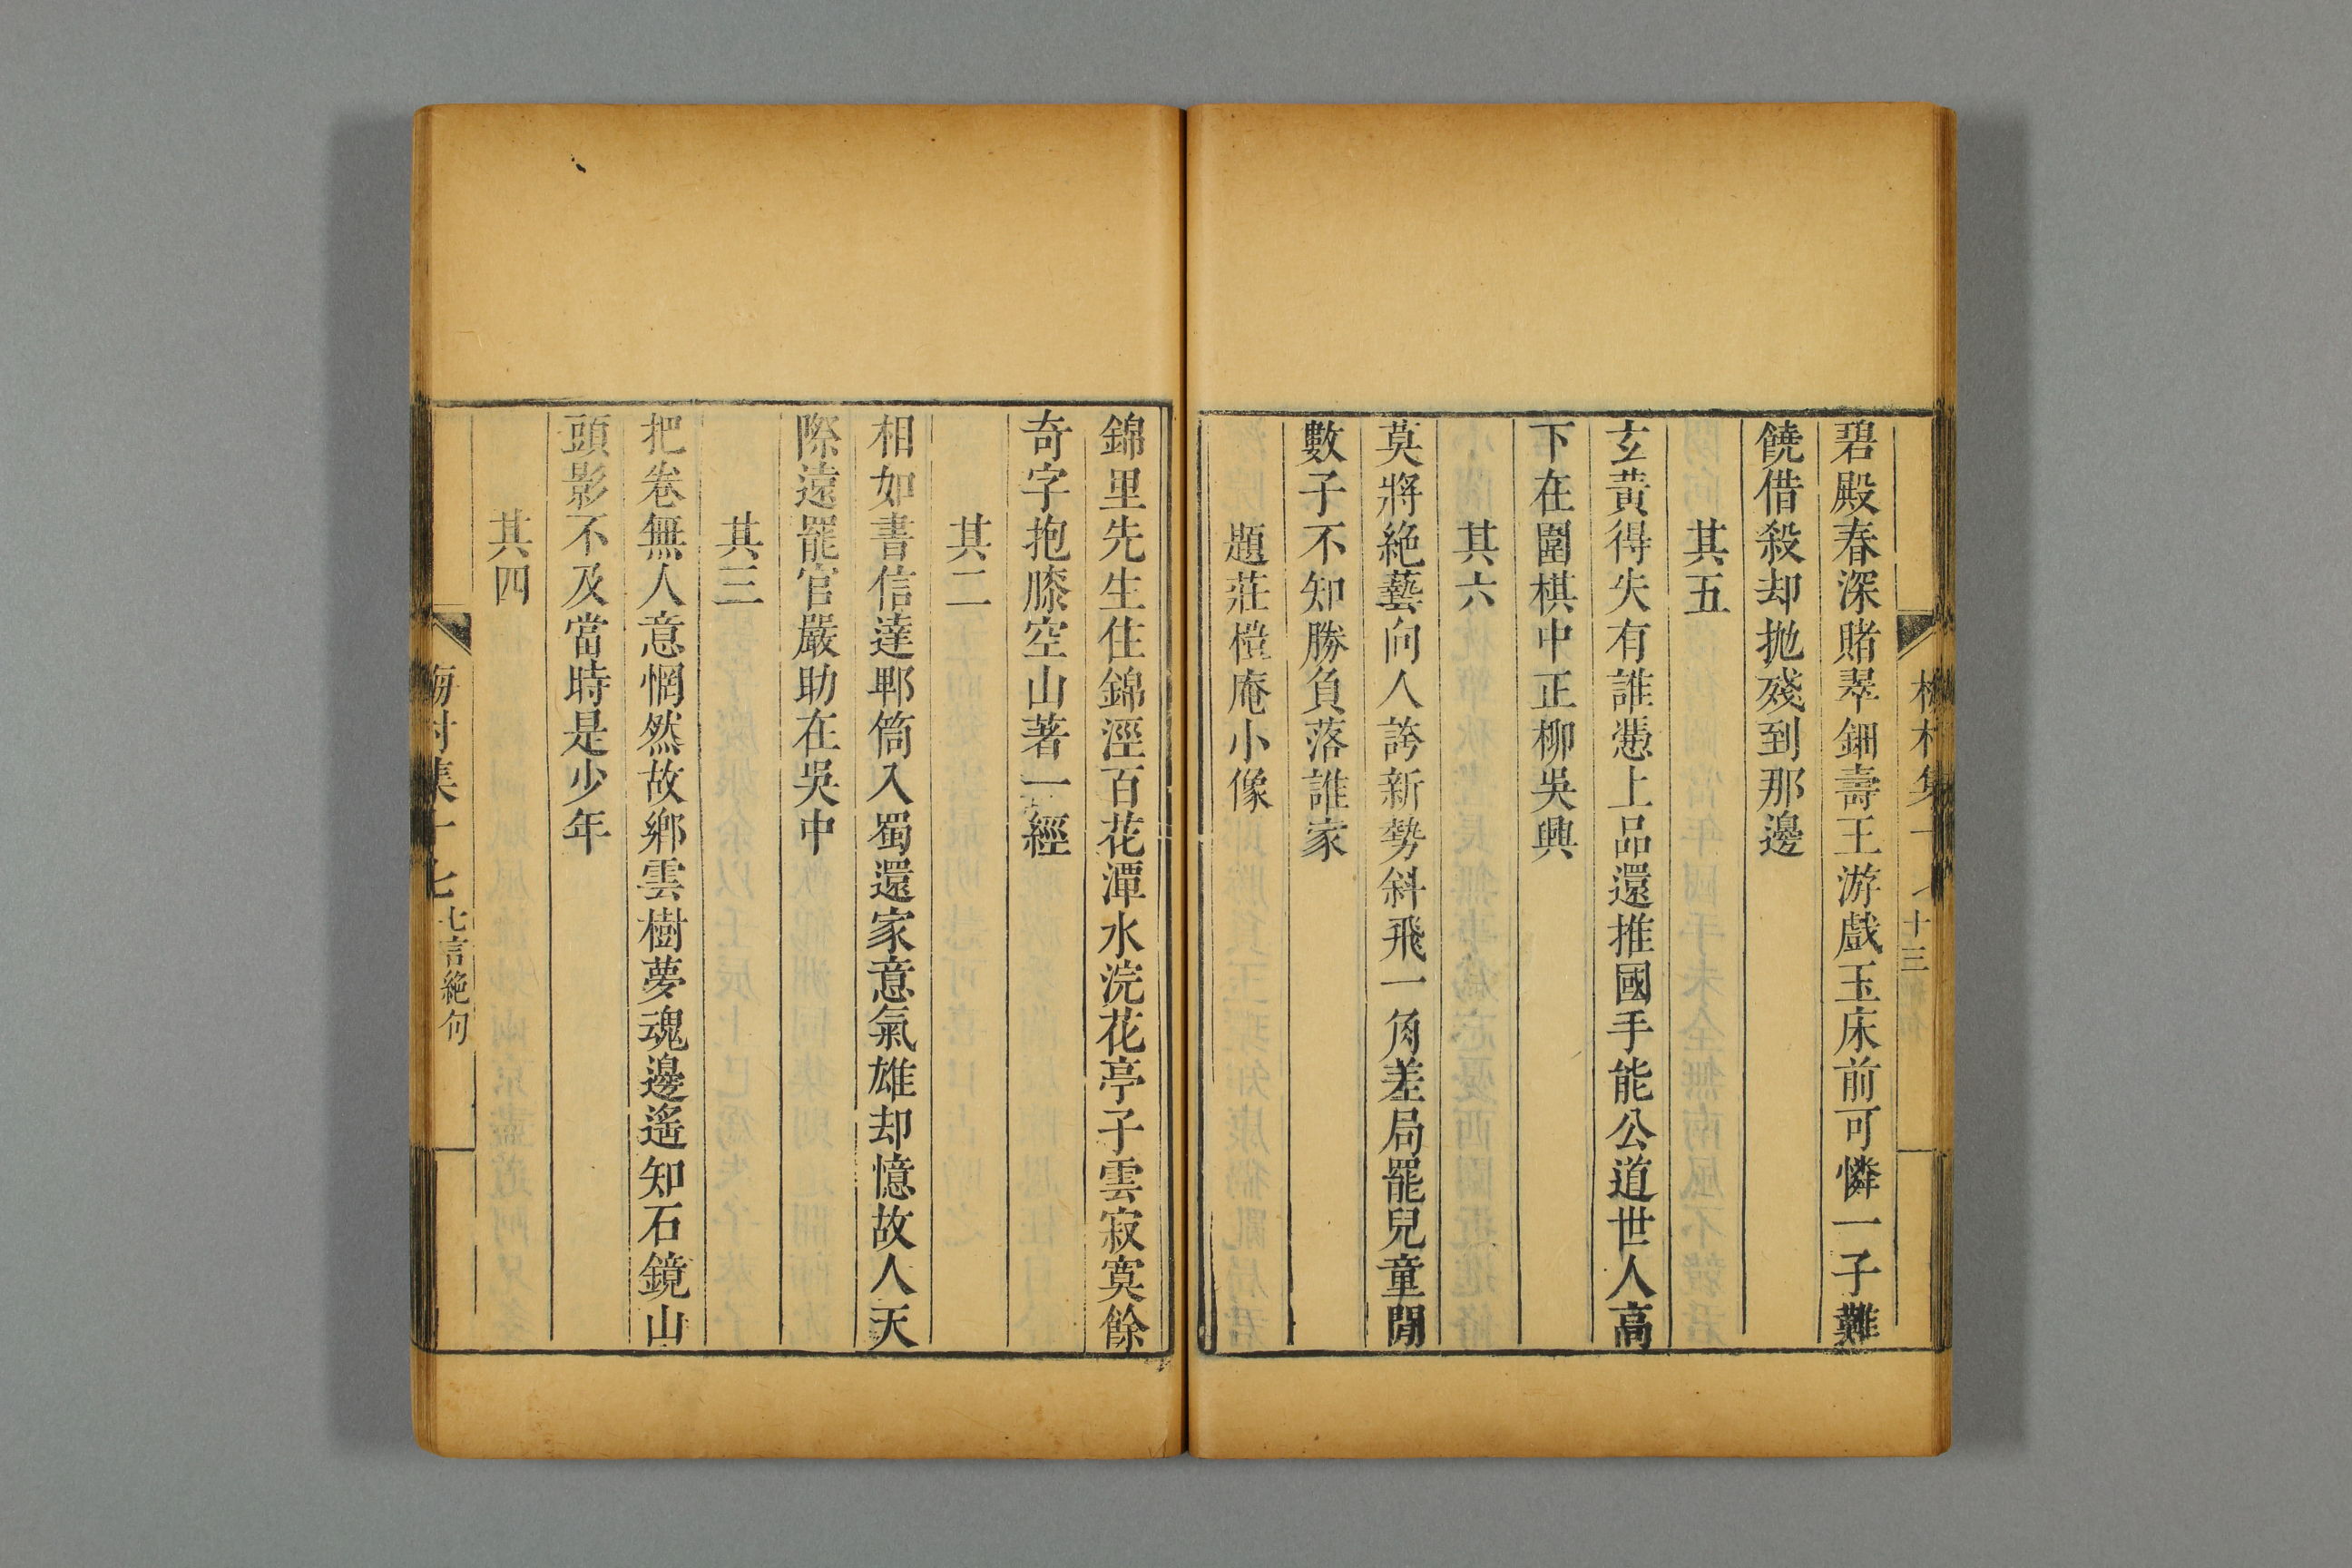 碧殿春深賭翠鈿壽王游戲玉床前可憐一子難
饒借殺却拋殘到那邊
其五
玄黃得失有誰憑上品還推國手能公道世人高
下在圍棋中正柳吳興
其六
莫將絶藝向人誇新勢斜飛一角差局罷兒童閒
數子不知勝負落誰家
題莊榿庵小像
十三
錦里先生住錦涇百花潭水浣花亭子雲寂寞餘
奇字抱膝空山著一經
其二
相如書信達郫筒入蜀還家意氣雄却憶故人天
際遠罷官嚴助在吳中
其三
把卷無人意惘然故鄉雲樹夢魂邊遙知石鏡山
頭影不及當時是少年
其四
梅村集十七 七言絶句